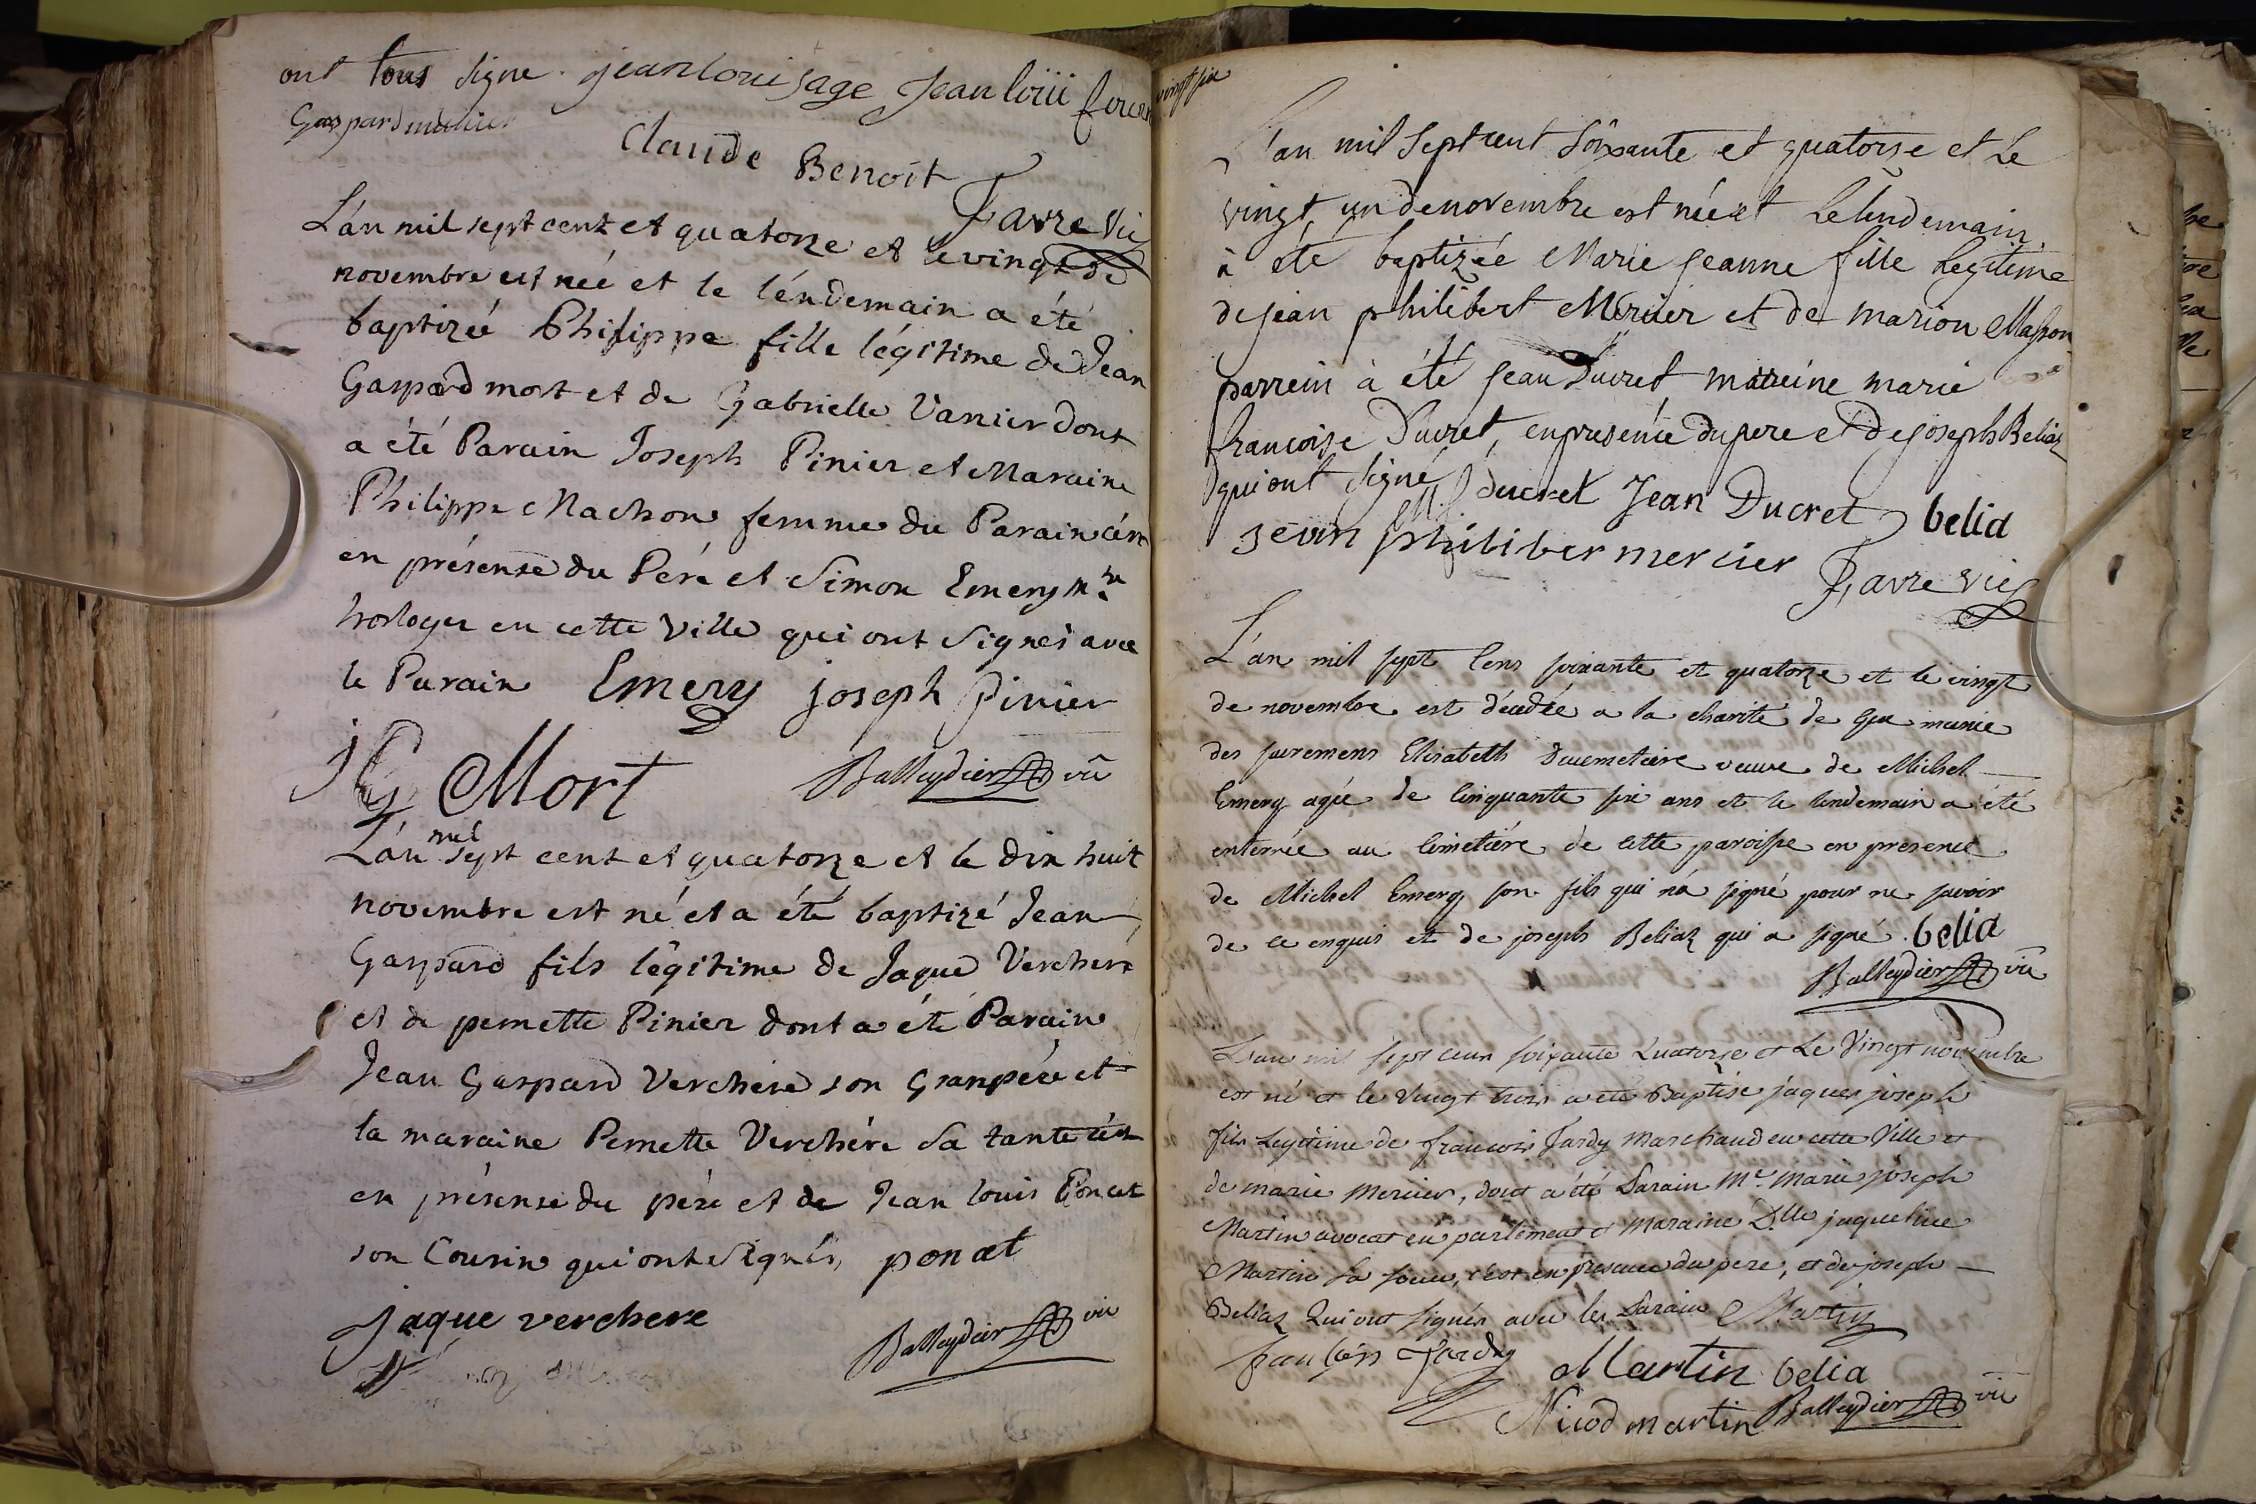 ont tous signe. jean loui sage jean loüi
Gaspard
Claude Benoit
Favre Vic
L'an mil sept cent et quatorze et le vingt de
novembre est née et le léndemain a été
baptizée Philippe fille légitime de Jean
Gaspard mort et de Gabrielle Vanier dont
a été Parain Joseph Pinier et Maraine
Philippe Machon femme du Parain
en présense du Péré et Simon Emery
horloger en cette Ville qui ont Signés avec
le Parain Emery joseph pinier
jG Mort Balleydier vic
L'an mil sept cent et quatorze et le dix huit
novembre est né et a été baptizé Jean
Gaspard fils légitime de Jaque Verchere
et de pernette Pinier dont a été Parain
Jean Gaspard Verchere son Granpére et
la maraine Pernette Verchére sa tante
en présense du pére et de Jean louis Poncet
son Cousin qui ont Signés, poncet
jaque verchere
Balleydier vic
vingt six
L'an mil Sept cent Soixante et quatorse et Le
vingt un de novembre est née et Le lendemain
à été baptizée Marie jeanne fille Legitime
de jean philibert Mercier et de marion Masson
parrein à été jean Ducret mareine marie
francoise Ducret, en presence du pere et de joseph Beliaz
qui ont Signé M f ducret Jean Ducret belia
philiber mercier
Favre vic
L'an mil sept cens soixante et quatorze et le vingt
de novembre est décédée a la charité de Gex munie
des sacremens Elisabeth Ducimetiere veuve de Michel
Emery agée de cinquante six ans et le lendemain a été
enterrée au cimetiére de cette paroisse en presence
de Michel Emery son fils qui n'a signé pour ne savoir
de ce enquis et de joseph Beliaz qui a signé. belia
Balleydier vic
L'an mil sept cens soixante Quatorse et Le Vingt novembre
est né et le Vingt trois a eté Baptisé jaques joseph
fils Legitime de francois Tardy Marchand en cette Ville et
de marie Mercier, dont a été Parain Me. Marie joseph
Martin avocat en parlement et Maraine Dlle jaqueline
Martin sa soeur, c'est en presence du pere, et de joseph
Beliaz Qui ont signés avec les Parain Martin
Tardy Martin belia
Nicod martin Balleydier vic